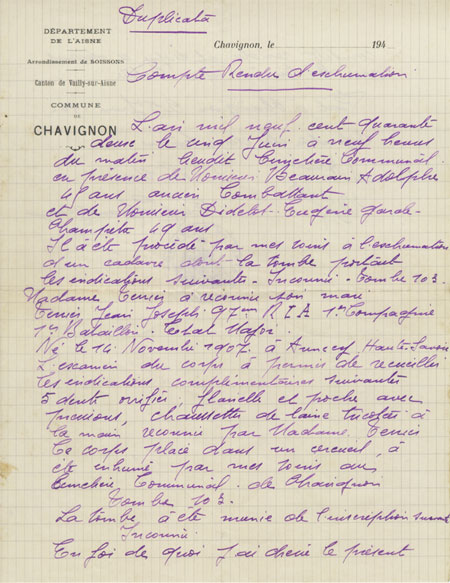 Duplicata
DÉPARTEMENT
DE L'AISNE
Arrondissement de SOISSONS
Canton de Vailly-sur-Aisne
COMMUNE
DE
CHAVIGNON
Chavignon, le 194
Compte Rendu d'exhumation
L'an mil neuf cent quarante
deux le cinq Juin à neuf heures
du matin Cimetière Communal
en présence de Monsieur Beaurain Adolphe
49 ans ancien Combattant
et de Monsieur Didelot Eugène garde-
Champêtre 49 ans
Il à été procédé par mes soins à l'exhumation
d'un cadavre dont la tombe portait
les indications suivantes - Inconnu - Tombe 103.
Madame à reconnu son mari
Jean Joseph 97em R.I.A 1er Compagnie
1er Bataillon - Etat Major.
Né le 14 Novembre 1907 à Annecy Haute-Savoie
L'examen du corps à permis de recueillir
les indications complémentaires suivantes
5 dents aurifiés, flanelle et poche avec
pressions, chaussette de laine tricotés à
la main reconnu par Madame
Ce corps placé dans un cercueil, à
été inhumé par mes soins au
Cimetière Communal de Chavignon
Tombe 103.
La tombe à été munie de l'inscription suivante
Inconnu
En foi de quoi j'ai dressé le présent